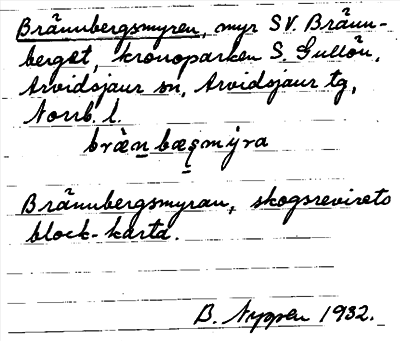 Brännbergsmyren, myr SV. Bränn-
berget, kronoparken S. Gullön,
Arvidsjaur sn, Arvidsjaur tg,
Norrb. l.
bræ̀n̠bæșmýra
Brännbergsmyran, skogsrevirets
block-karta.
B. Nyppen 1932.